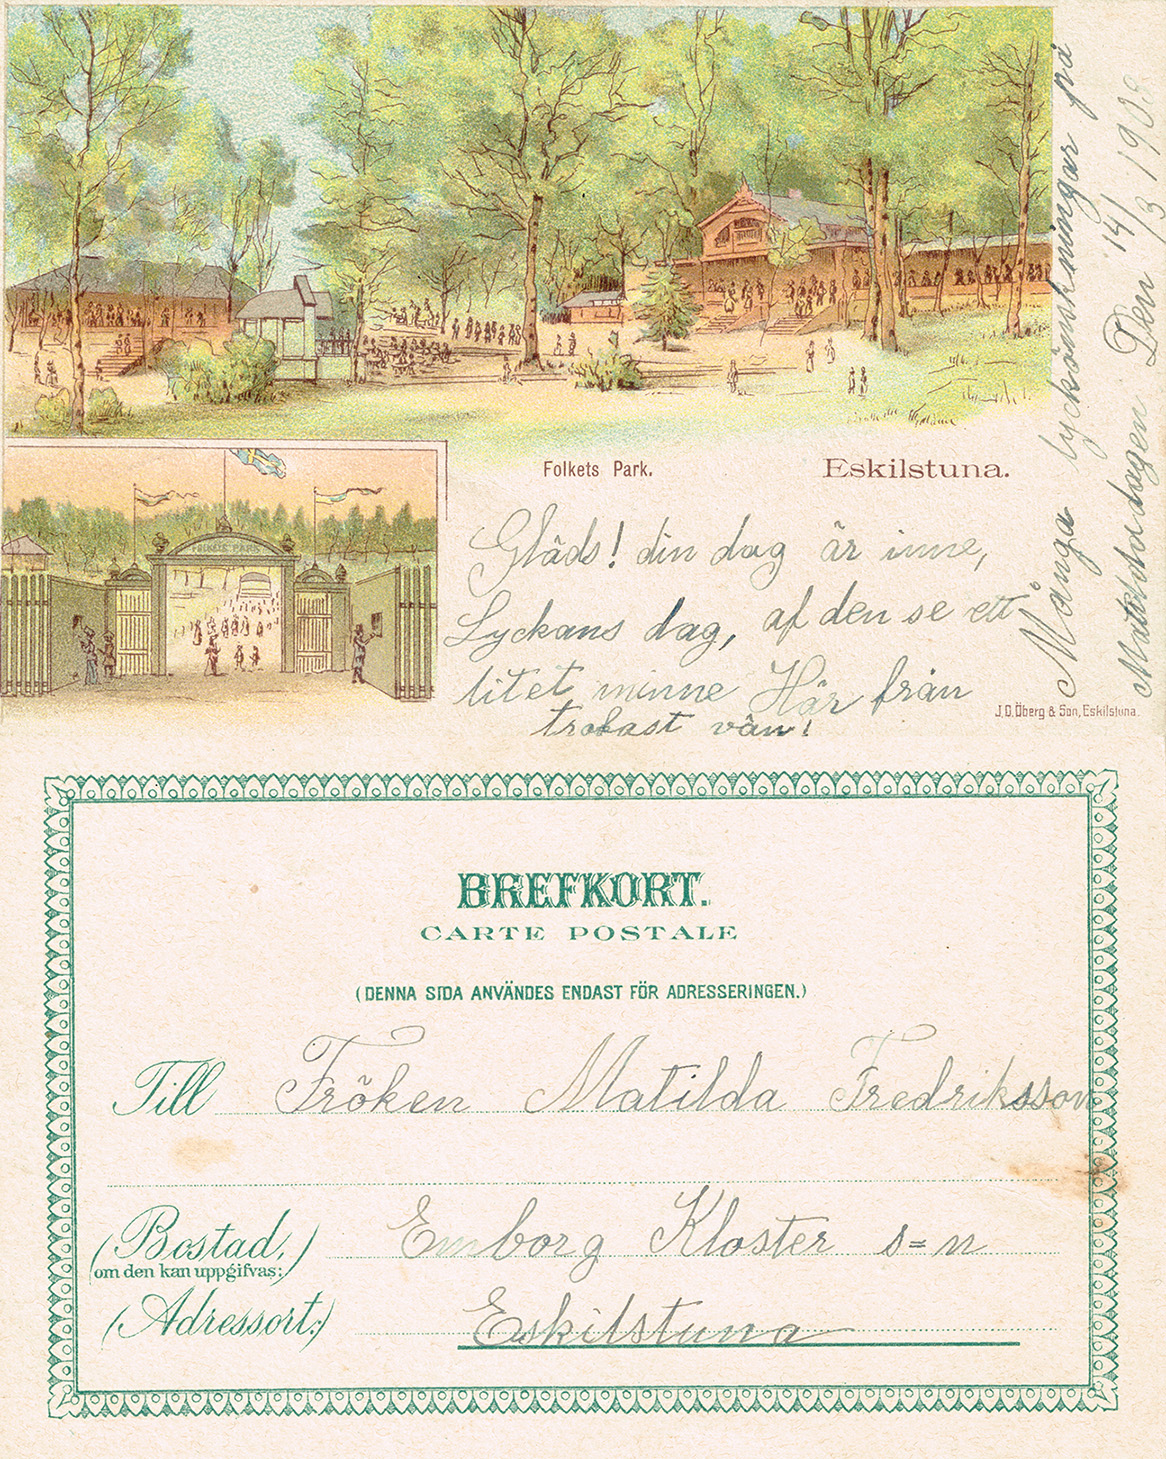 FOLKETS PARK
Folkets Park.
Eskilstuna.
Gläds! din dag är inne,
Lyckans dag, af den se ett
litet minne Här från
trofast vän!
Många lyckönskningar på
Matildadagen Den 14/3 190
J.O. Öberg & Son, Eskilstuna.
BREFKORT.
CARTE POSTALE
(DENNA SIDA ANVÄNDES ENDAST FÖR ADRESSERINGEN.)
Till Fröken Matilda Fredriksson
(Bostad, Emborg Kloster s=n
om den kan uppgifvas:)
(Adressort:) Eskilstuna